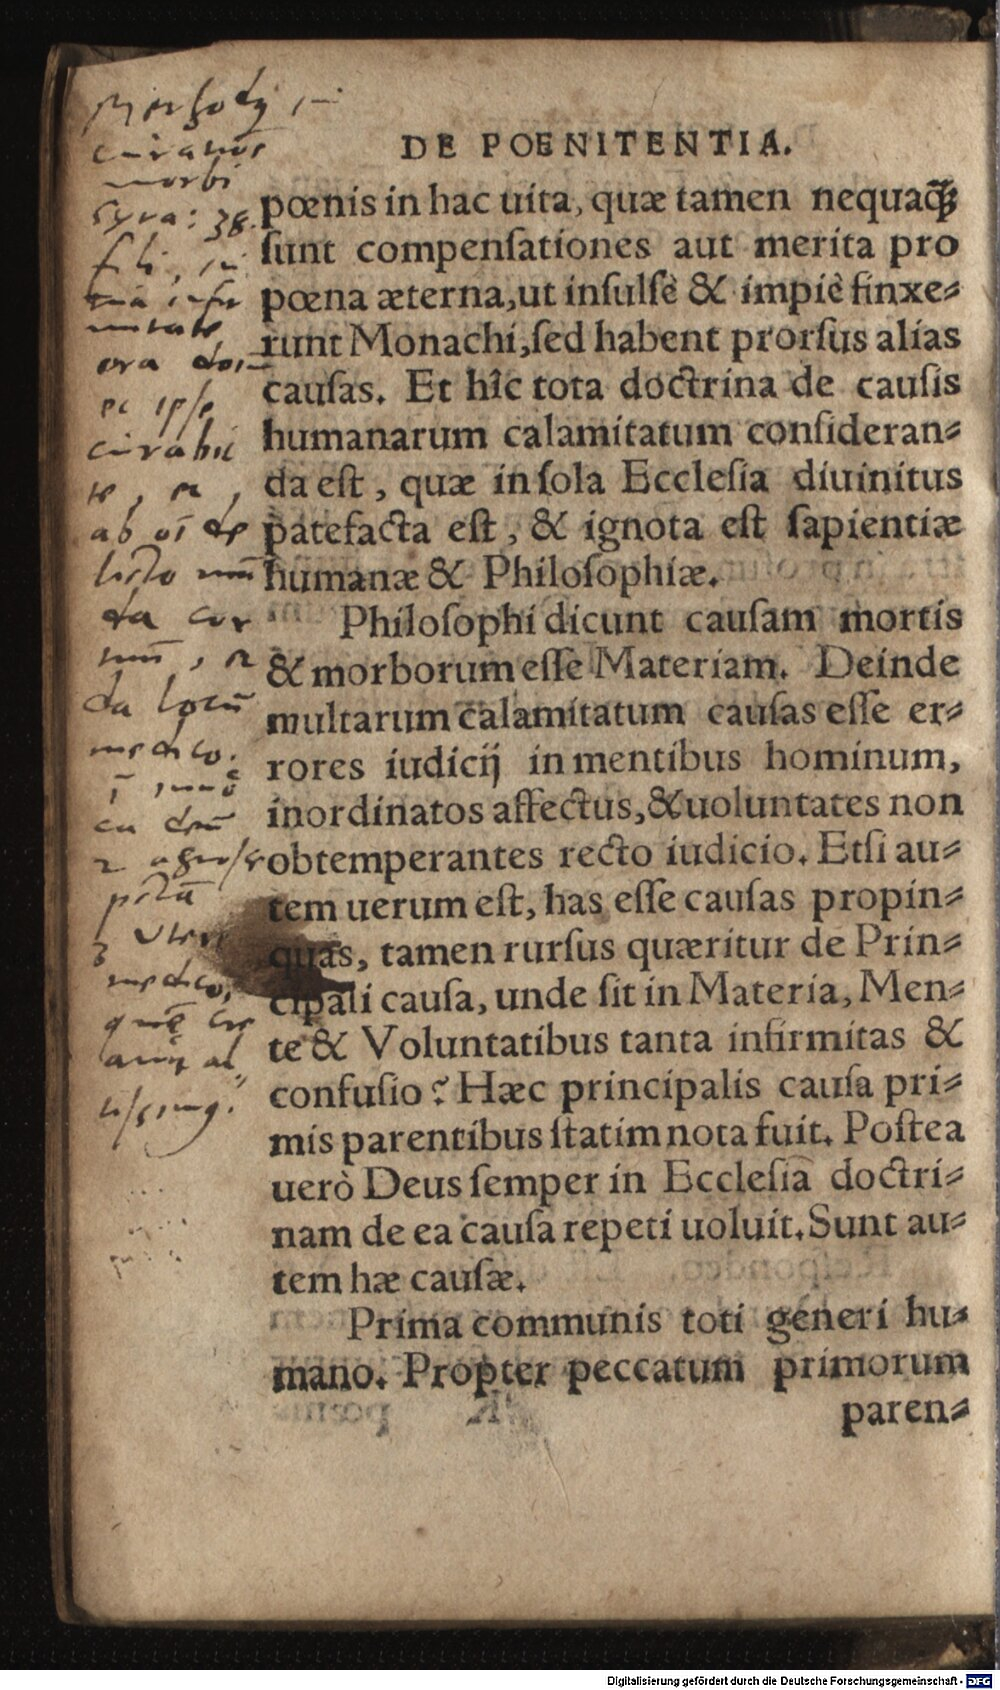 DE POENITENTIA.
pœnis in hac uita, quæ tamen nequaꝗ̃;
sunt compensationes aut merita pro
pœna æterna, ut insulsè & impiè finxe⸗
runt Monachi, sed habent prorsus alias
causas. Et hîc tota doctrina de causis
humanarum calamitatum consideran⸗
da est, quæ in sola Ecclesia diuinitus
patefacta est, & ignota est sapientiæ
humanæ & Philosophiæ.
Philosophi dicunt causam mortis
& morborum esse Materiam. Deinde
multarum calamitatum causas esse er⸗
rores iudicij in mentibus hominum,
inordinatos affectus, & uoluntates non
obtemperantes recto iudicio. Etsi au⸗
tem uerum est, has esse causas propin⸗
quas, tamen rursus quæritur de Prin⸗
cipali causa, unde sit in Materia, Men⸗
te & Voluntatibus tanta infirmitas &
confusio? Hæc principalis causa pri⸗
mis parentibus statim nota fuit. Postea
uerò Deus semper in Ecclesia doctri⸗
nam de ea causa repeti uoluit. Sunt au⸗
tem hæ causæ.
Prima communis toti generi hu⸗
mano. Propter peccatum primorum
paren⸗
morbi
Syra: 38.
fili, in
ora
ipse
curabit
te, et
ab
da cor
da locū
medico.
medico,
Digitalisierung gefördert durch die Deutsche Forschungsgemeinschaft - DFG